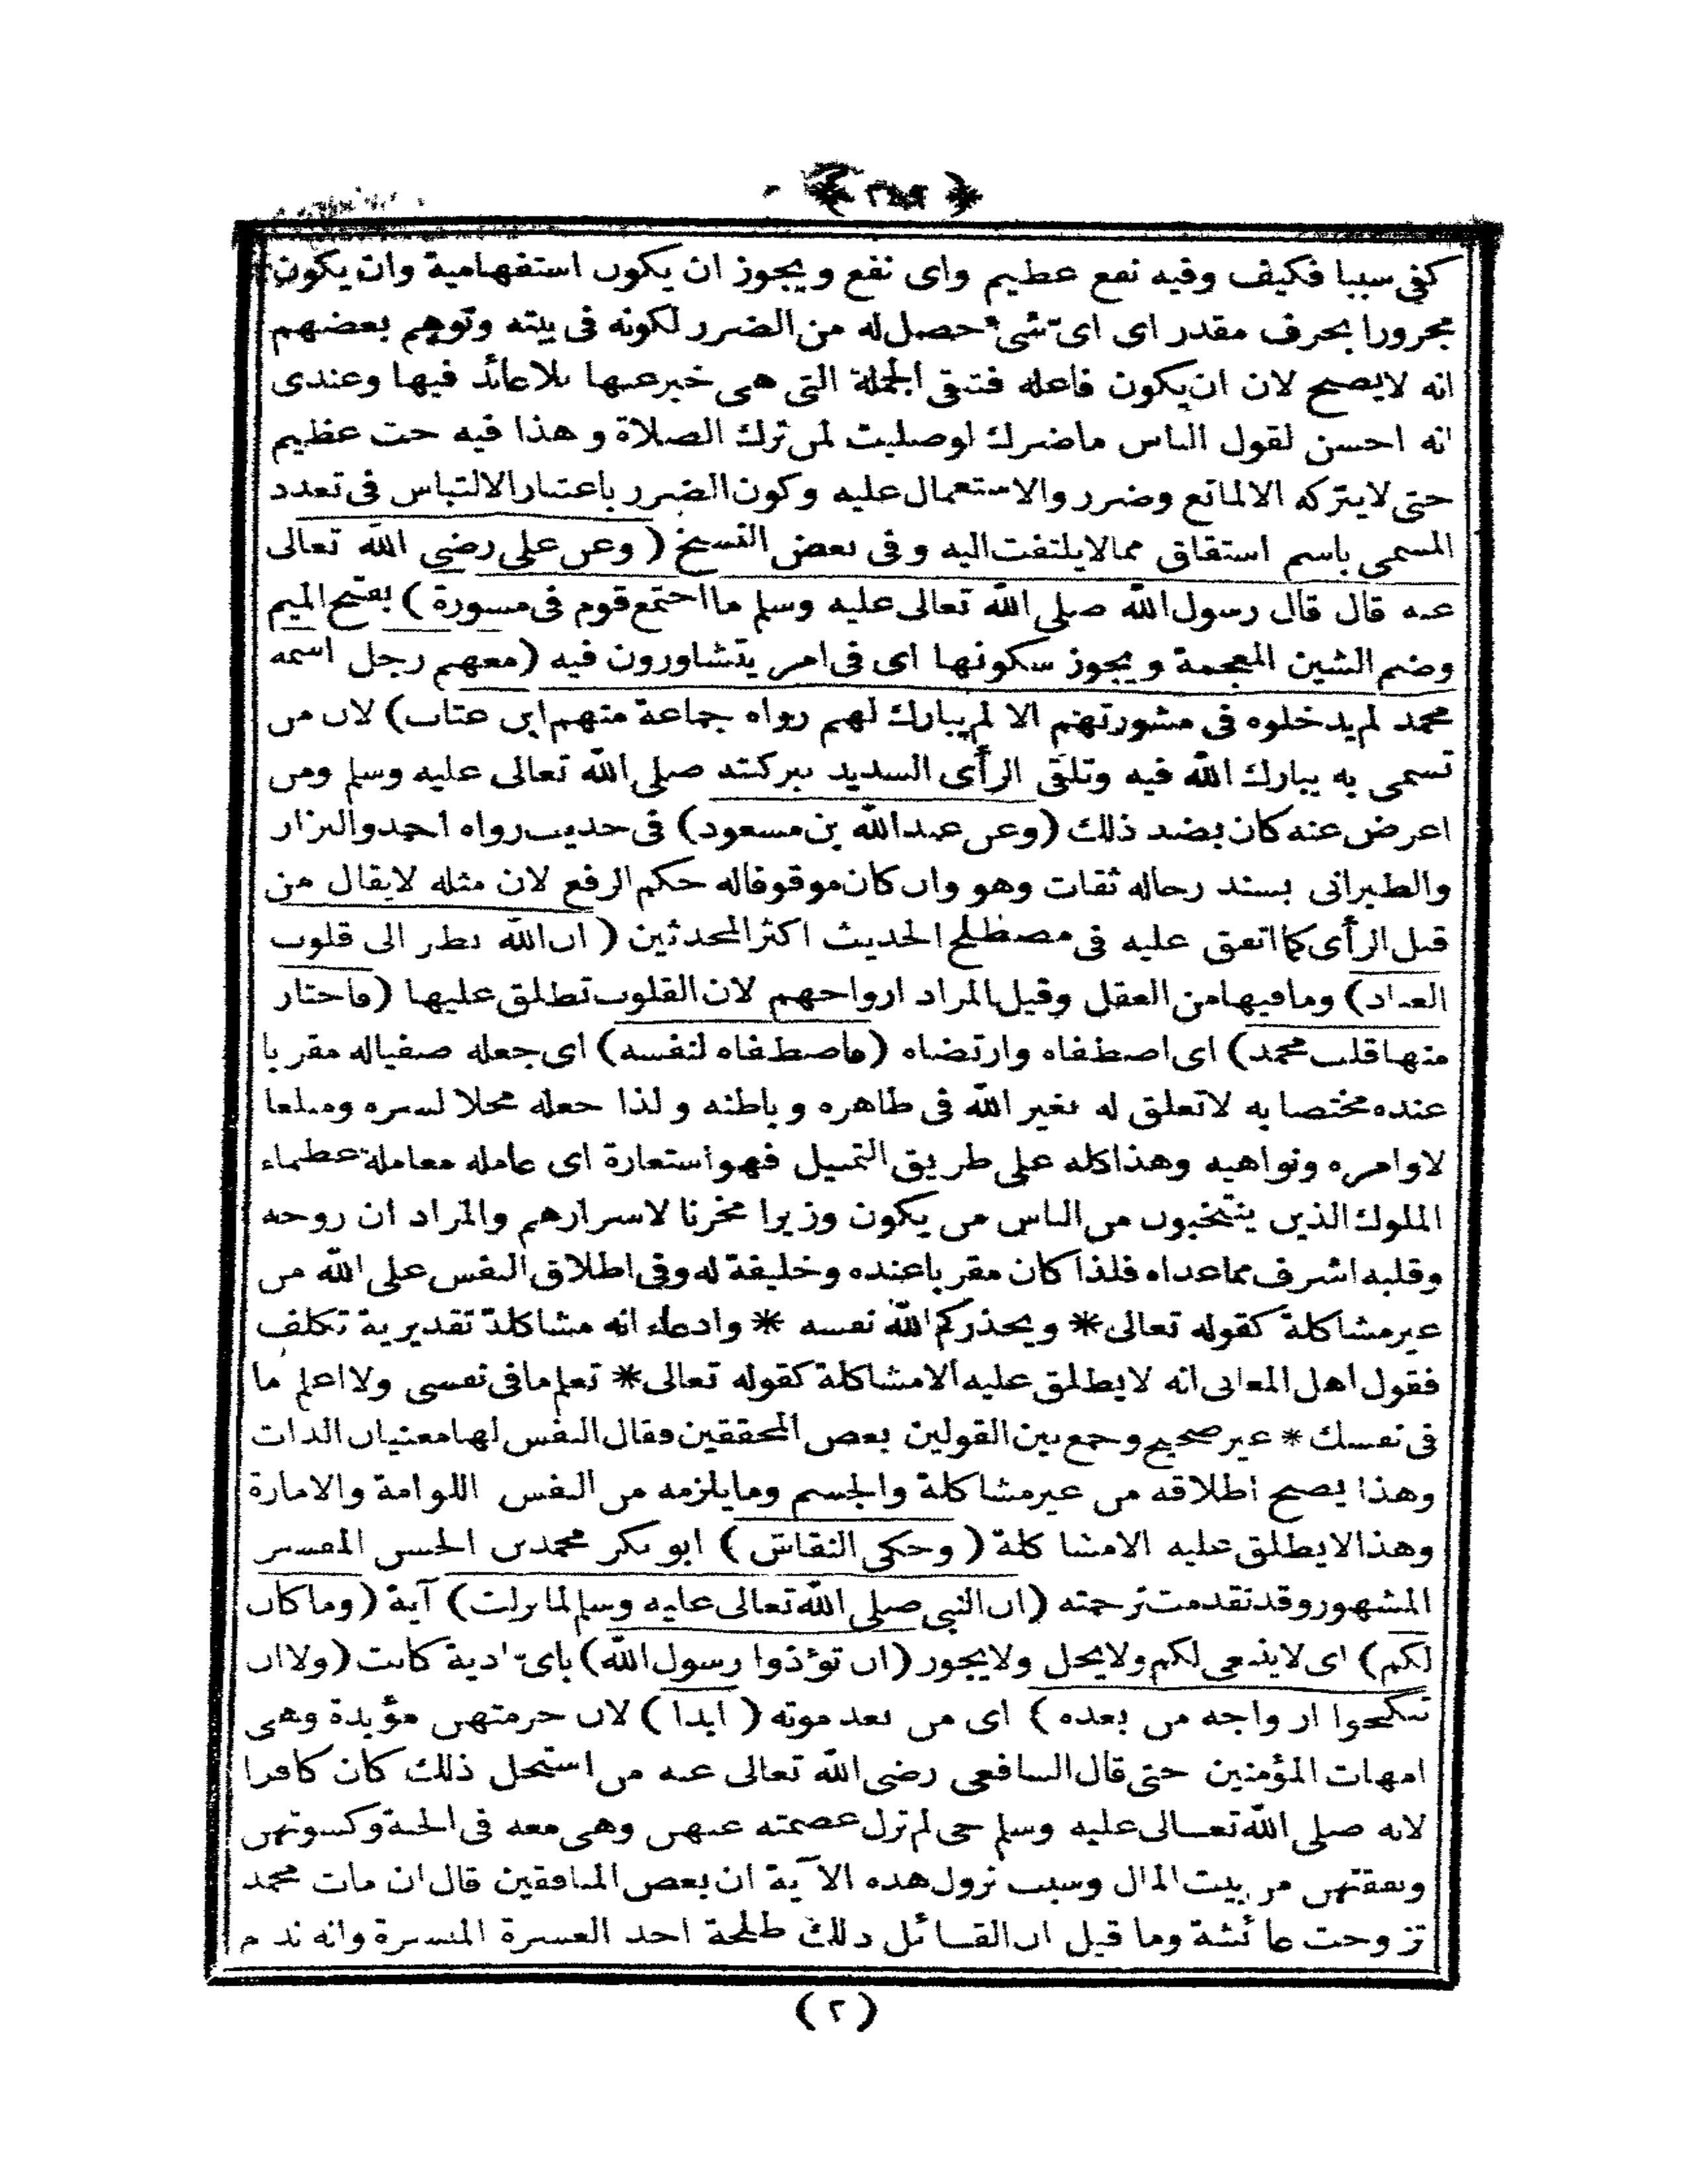 كفى سببا فكيف وفيه نفع عظيم واى نفع ويجوز ان يكون استفهامية وان يكون
مجرورا بحرف مقدر اى اى شئ حصل له من الضرر لكونه فى بيته وتوهم بعضهم
انه لايصح لان ان يكون فاعله فتبقى الجملة التى هى خبر عنها بلا عائد فيها وعندى
انه احسن لقول الناس ماضرك لوصليت لمن ترك الصلاة وهذا فيه حث عظيم
حتى لايتركه الالمانع وضرر والاستعمال عليه وكون الضرر باعتبار الالتباس فى تعدد
المسمى باسم اشتقاق ممالايلتفت اليه وفى بعض النسخ (وعن على رضى الله تعالى
عنه قال قال رسول الله صلى الله تعالى عليه وسلم مااجتمع قوم فى مشورة) بفتح الميم
وضم الشين المعجمة ويجوز سكونها اى فى امر يتشاورون فيه (معهم رجل اسمه
محمد لم يدخلوه فى مشورتهم الا لم يبارك لهم رواه جماعة منهم ابن عتاب) لان من
تسمى به يبارك الله فيه وتلقى الرأى السديد ببركته صلى الله تعالى عليه وسلم ومن
اعرض عنه كان بضد ذلك (وعن عبدالله بن مسعود) فى حديث رواه احمد والبزار
والطبرانى بسند رجاله ثقات وهو وان كان موقوفاله حكم الرفع لان مثله لايقال من
قبل الرأى كما اتفق عليه فى مصطلح الحديث اكثر المحدثين (ان الله نظر الى قلوب
العباد) ومافيها من العقل وقيل المراد ارواحهم لان القلوب تطلق عليها (فاختار
منها قلب محمد) اى اصطفاه وارتضاه (فاصطفاه لنفسه) اى جعله صفياله مقربا
عنده مختصا به لاتعلق له بغير الله فى ظاهره وباطنه ولذا جعله محلا لسره ومبلغا
لاوامره ونواهيه وهذاكله على طريق التمثيل فهو استعارة اى عامله معاملة عظماء
الملوك الذين ينتخبون من الناس من يكون وزيرا مخزنا لاسرارهم والمراد ان روحه
وقلبه اشرف مماعداه فلذا كان مقربا عنده وخليفة له وفى اطلاق النفس على الله من
غير مشاكلة كقوله تعالى * ويحذركم الله نفسه * وادعاء انه مشاكلة تقديرية تكلف
فقول اهل المعانى انه لايطلق عليه الامشاكلة كقوله تعالى * تعلم مافى نفسى ولااعلم ما
فى نفسك * غير صحيح وجمع بين القولين بعض المحققين فقال النفس لها معنيان الذات
وهذا يصح اطلاقه من غير مشاكلة والجسم ومايلزمه من النفس اللوامة والامارة
وهذا لايطلق عليه الامشاكلة (وحكى النقاش) ابو بكر محمد بن الحسن المفسر
المشهور وقد تقدمت ترجمته (ان النبى صلى الله تعالى عليه وسلم لما نزلت) آية (وماكان
لكم) اى لاينبغى لكم ولايحل ولايجوز (ان تؤذوا رسول الله) باى اذية كانت (ولا ان
تنكحوا ازواجه من بعده) اى من بعد موته (ابدا) لان حرمتهن مؤبدة وهى
امهات المؤمنين حتى قال الشافعى رضى الله تعالى عنه من استحل ذلك كان كافرا
لانه صلى الله تعالى عليه وسلم حى لم تزل عصمته عنهن وهى معه فى الجنة وكسوتهن
ونفقتهن من بيت المال وسبب نزول هذه الآية ان بعض المنافقين قال ان مات محمد
تزوجت عائشة وما قيل ان القائل ذلك طلحة احد العشرة المبشرة وانه ندم
(٢)